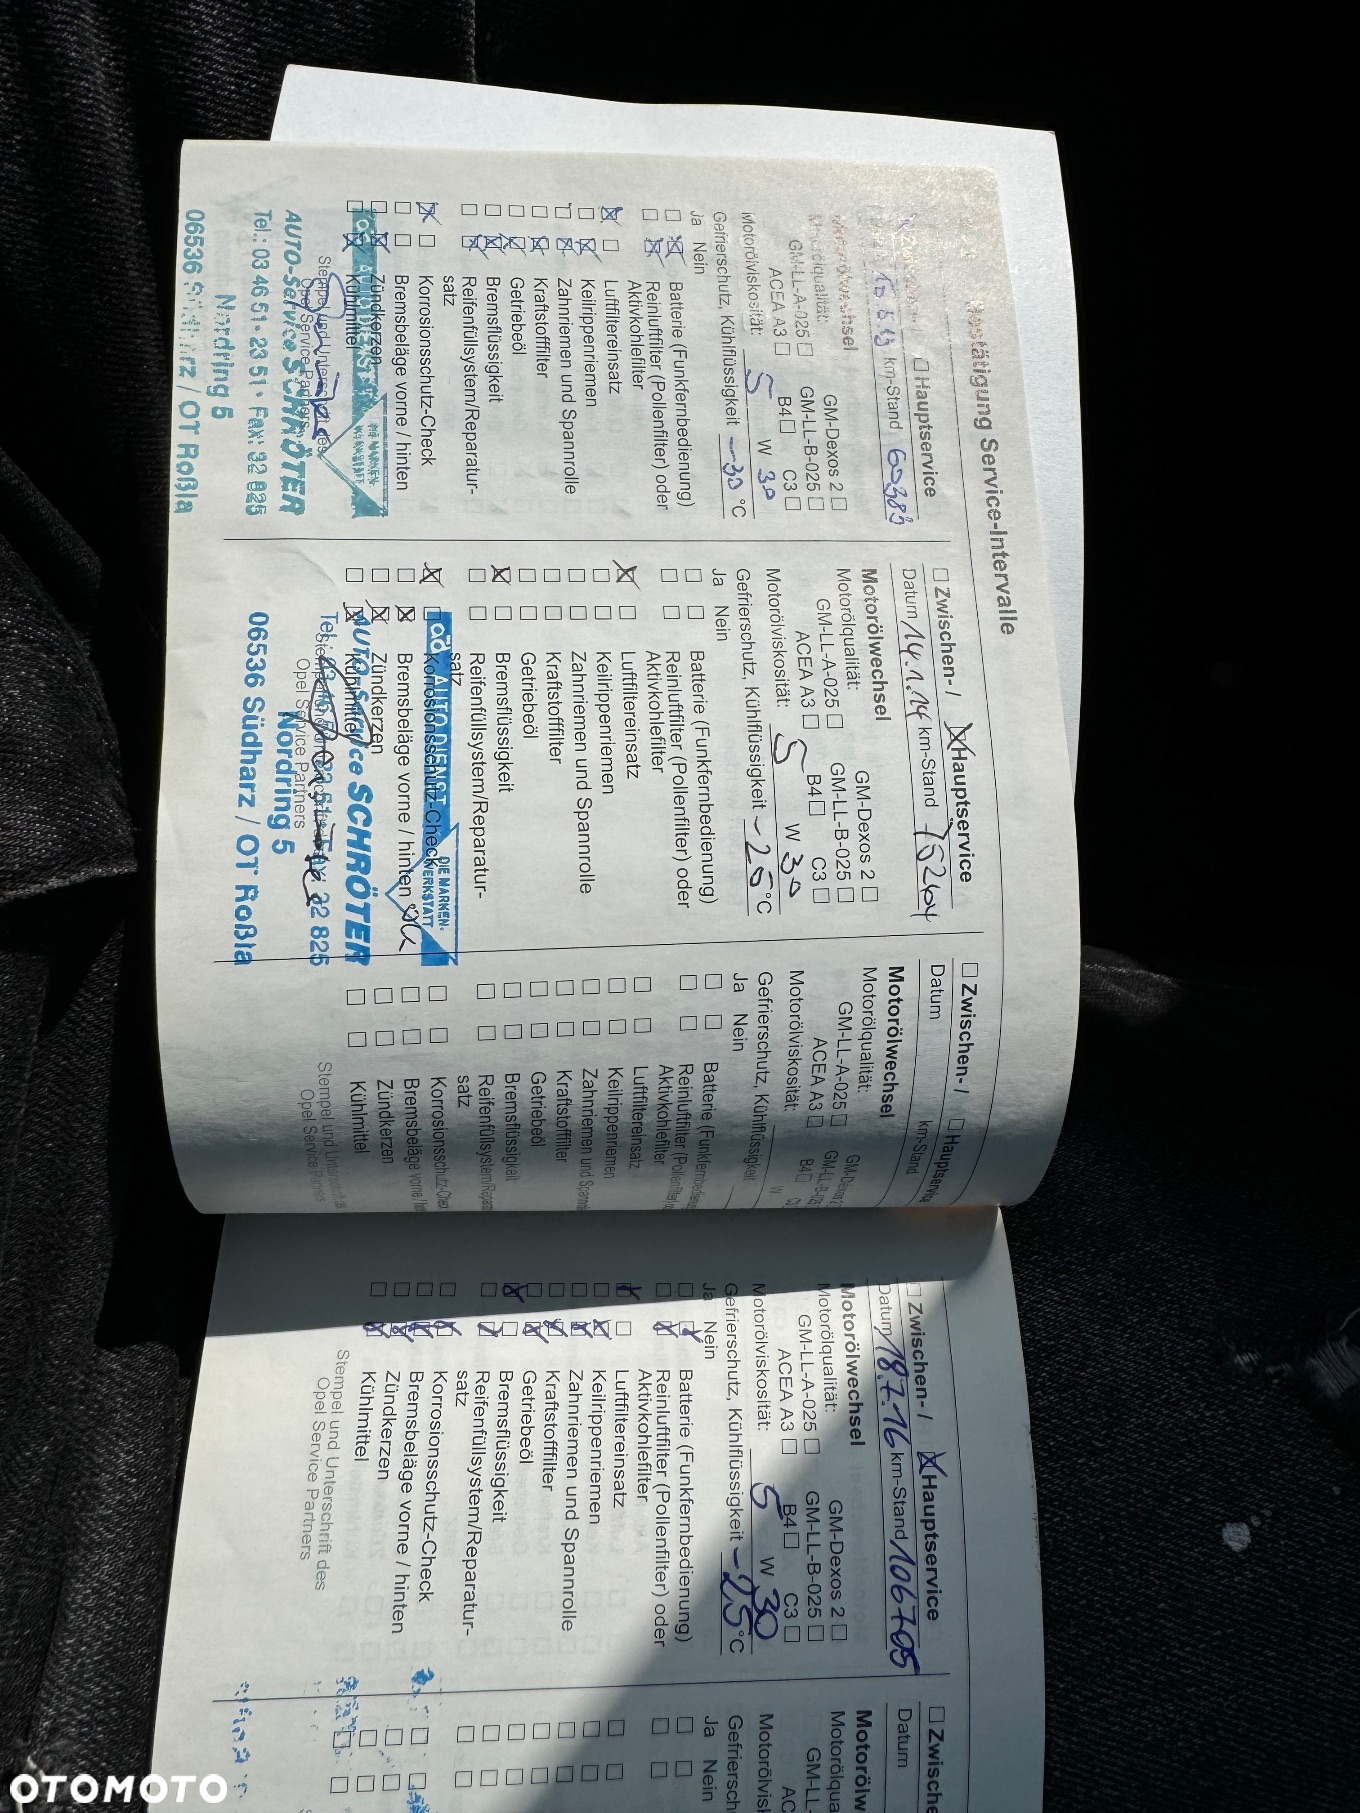 Bestätigung Service-Intervalle
☐ Hauptservice
km-Stand 60389
Motorölwechsel
Motorölqualität:
GM-Dexos 2 ☐
GM-LL-A-025 ☐ GM-LL-B-025 ☐
ACEA A3 ☐ B4 ☐ C3 ☐
Motorölviskosität: 5 W 30
Gefrierschutz, Kühlflüssigkeit -30 °C
Ja Nein
☐ ☒ Batterie (Funkfernbedienung)
☐ ☒ Reinluftfilter (Pollenfilter) oder
Aktivkohlefilter
☒ ☐ Luftfiltereinsatz
☐ ☒ Keilrippenriemen
☐ ☒ Zahnriemen und Spannrolle
☐ ☒ Kraftstofffilter
☐ ☒ Getriebeöl
☐ ☒ Bremsflüssigkeit
☐ ☒ Reifenfüllsystem/Reparatur-
satz
☒ ☐ Korrosionsschutz-Check
☐ ☐ Bremsbeläge vorne / hinten
☐ ☒ Zündkerzen
☐ ☒ Kühlmittel
Stempel und Unterschrift des
Opel Service Partners
AUTO-Service SCHRÖTER
Tel.: 03 46 51 · 23 51 · Fax: 32 825
Nordring 5
06536 Südharz / OT Roßla
☐ Zwischen- / ☒ Hauptservice
Datum 14.1.14 km-Stand 75264
Motorölwechsel
Motorölqualität:
GM-Dexos 2 ☐
GM-LL-A-025 ☐ GM-LL-B-025 ☐
ACEA A3 ☐ B4 ☐ C3 ☐
Motorölviskosität: 5 W 30
Gefrierschutz, Kühlflüssigkeit -25 °C
Ja Nein
☐ ☐ Batterie (Funkfernbedienung)
☐ ☐ Reinluftfilter (Pollenfilter) oder
Aktivkohlefilter
☒ ☐ Luftfiltereinsatz
☐ ☐ Keilrippenriemen
☐ ☐ Zahnriemen und Spannrolle
☐ ☐ Kraftstofffilter
☐ ☐ Getriebeöl
☒ ☐ Bremsflüssigkeit
☐ ☐ Reifenfüllsystem/Reparatur-
satz
☒ ☐ Korrosionsschutz-Check
☐ ☒ Bremsbeläge vorne / hinten
☐ ☒ Zündkerzen
☐ ☒ Kühlmittel
ad AUTO DIENST
DIE MARKEN-
WERKSTATT
Opel Service Partners
AUTO-Service SCHRÖTER
Nordring 5
06536 Südharz / OT Roßla
☐ Zwischen- / ☐ Hauptservice
Datum km-Stand
Motorölwechsel
Motorölqualität:
GM-Dexos 2
GM-LL-A-025 ☐ GM-LL-B-025
ACEA A3 ☐ B4 ☐
Motorölviskosität: W
Gefrierschutz, Kühlflüssigkeit
Ja Nein
☐ ☐ Batterie (Funkfernbedienung)
☐ ☐ Reinluftfilter (Pollenfilter)
Aktivkohlefilter
☐ ☐ Luftfiltereinsatz
☐ ☐ Keilrippenriemen
☐ ☐ Zahnriemen und Spannrolle
☐ ☐ Kraftstofffilter
☐ ☐ Getriebeöl
☐ ☐ Bremsflüssigkeit
☐ ☐ Reifenfüllsystem/Reparatur-
satz
☐ ☐ Korrosionsschutz-Check
☐ ☐ Bremsbeläge vorne /
☐ ☐ Zündkerzen
☐ ☐ Kühlmittel
Stempel und Unterschrift des
Opel Service Partners
☐ Zwischen- / ☒ Hauptservice
Datum 18.7.16 km-Stand 106705
Motorölwechsel
Motorölqualität:
GM-Dexos 2 ☐
GM-LL-A-025 ☐ GM-LL-B-025 ☐
ACEA A3 ☐ B4 ☐ C3 ☐
Motorölviskosität: 5 W 30
Gefrierschutz, Kühlflüssigkeit -25 °C
Ja Nein
☐ ☒ Batterie (Funkfernbedienung)
☐ ☒ Reinluftfilter (Pollenfilter) oder
Aktivkohlefilter
☒ ☐ Luftfiltereinsatz
☐ ☒ Keilrippenriemen
☐ ☒ Zahnriemen und Spannrolle
☐ ☒ Kraftstofffilter
☐ ☒ Getriebeöl
☒ ☐ Bremsflüssigkeit
☐ ☒ Reifenfüllsystem/Reparatur-
satz
☐ ☒ Korrosionsschutz-Check
☐ ☒ Bremsbeläge vorne / hinten
☐ ☒ Zündkerzen
☐ ☒ Kühlmittel
Stempel und Unterschrift des
Opel Service Partners
☐ Zwische
Datum
Motorölw
Motorölqua
GM-LL-
AC
Motorölvis
Gefriersch
Ja Nein
OTOMOTO